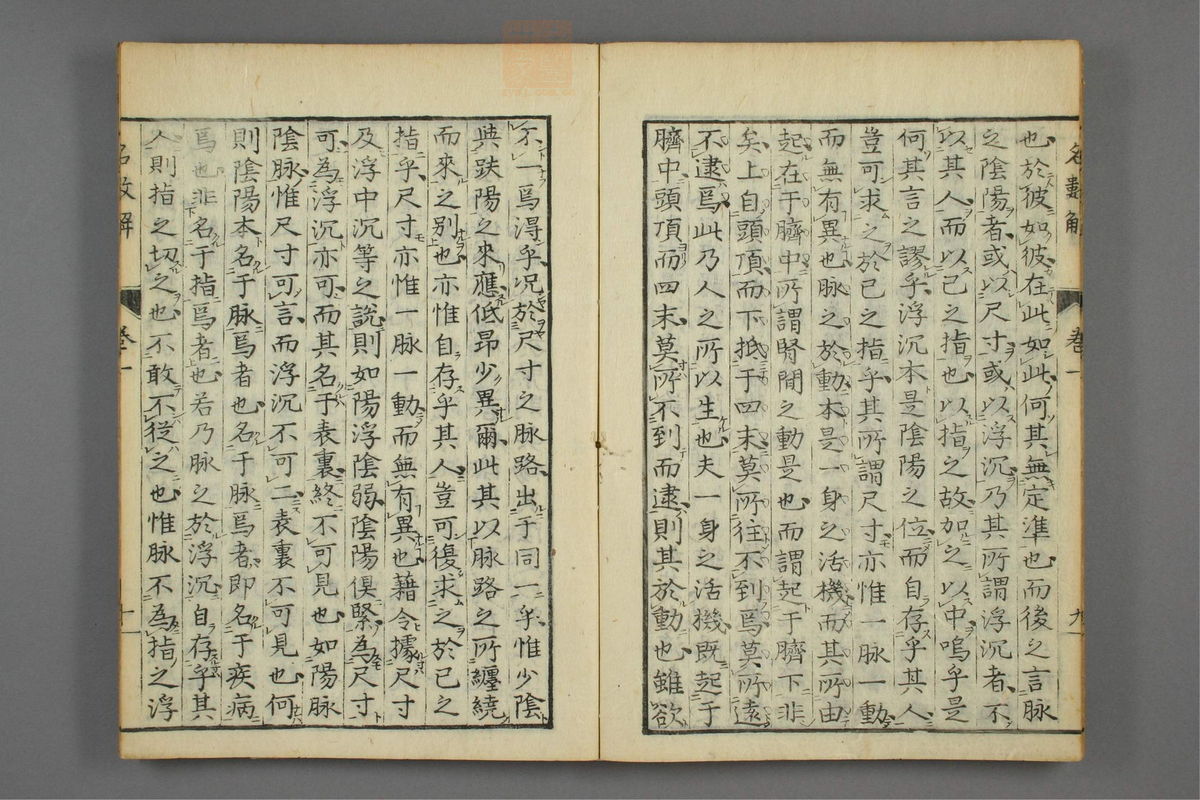 名數解 卷一 九
也於彼如彼在此如此何其無定準也而後之言脉
之陰陽者或以尺寸或以浮沉乃其所謂浮沉者不
以其人而以己之指也以指之故加之以中嗚乎是
何其言之謬乎浮沉本是陰陽之位而自存乎其人
豈可求之於己之指乎其所謂尺寸亦惟一脉一動
而無有異也脉之於動本是一身之活機而其所由
起在于臍中所謂腎間之動是也而謂起于臍下非
矣上自頭頂而下抵于四末莫所往不到焉莫所遠
不逮焉此乃人之所以生也夫一身之活機既起于
臍中頭頂而四末莫所不到而逮則其於動也雖欲
不一焉得乎況於尺寸之脉路出于同一乎惟少陰
與趺陽之來應低昂少異爾此其以脉路之所纏繞
而來之別也亦惟自存乎其人豈可復求之於己之
指乎尺寸亦惟一脉一動而無有異也藉令據尺寸
及浮中沉等之說則如陽浮陰弱陰陽俱緊為尺寸
可為浮沉亦可而其名于表裏終不可見也如陽脉
陰脉惟尺寸可言而浮沉不可二表裏不可見也何
則陰陽本名于脉焉者也名于脉焉者即名于疾病
焉也非名于指焉者也若乃脉之於浮沉自存乎其
人則指之切之也不敢不從之也惟脉不為指之浮
名數解 卷一 十